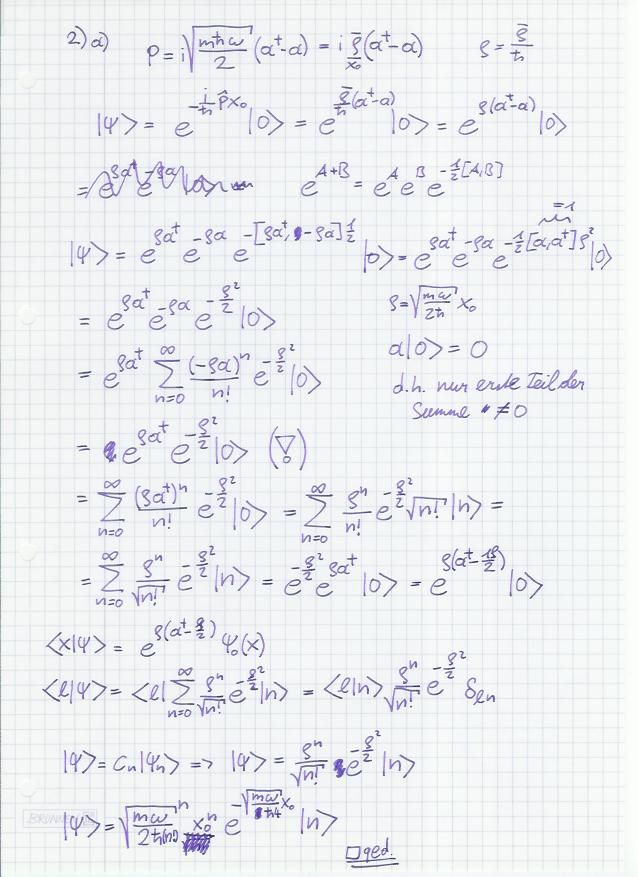 2) a) P = i√(mħω/2) (a†-a) = i ξ̄/x₀ (a†-a)    ξ = ξ̄/ħ
|ψ> = e^(-i/ħ p̂x₀) |0> = e^(ξ̄/ħ (a†-a)) |0> = e^(ξ(a†-a)) |0>
=    e^(A+B) = e^A e^B e^(-1/2[A,B])
|ψ> = e^(ξa†) e^(-ξa) e^(-[ξa†, -ξa]1/2) |0> = e^(ξa†) e^(-ξa) e^(-1/2[a,a†]ξ²) |0>    =1
= e^(ξa†) e^(-ξa) e^(-ξ²/2) |0>    ξ = √(mω/2ħ) x₀
= e^(ξa†) ∑_(n=0)^∞ (-ξa)^n/n! e^(-ξ²/2) |0>    a|0> = 0
d.h. nur erste Teil der
Summe ≠ 0
= e^(ξa†) e^(-ξ²/2) |0> (!)
= ∑_(n=0)^∞ (ξa†)^n/n! e^(-ξ²/2) |0> = ∑_(n=0)^∞ ξ^n/n! e^(-ξ²/2) √n! |n> =
= ∑_(n=0)^∞ ξ^n/√n! e^(-ξ²/2) |n> = e^(-ξ²/2) e^(ξa†) |0> = e^(ξ(a†-ξ/2)) |0>
<x|ψ> = e^(ξ(a†-ξ/2)) ψ₀(x)
<l|ψ> = <l| ∑_(n=0)^∞ ξ^n/√n! e^(-ξ²/2) |n> = <l|n> ξ^n/√n! e^(-ξ²/2) δ_ln
|ψ> = c_n|ψ_n> => |ψ> = ξ^n/√n! e^(-ξ²/2) |n>
|ψ> = √(mω/2ħ(n!))^n x₀^n e^(-√(mω/ħ4) x₀) |n>
□ qed.